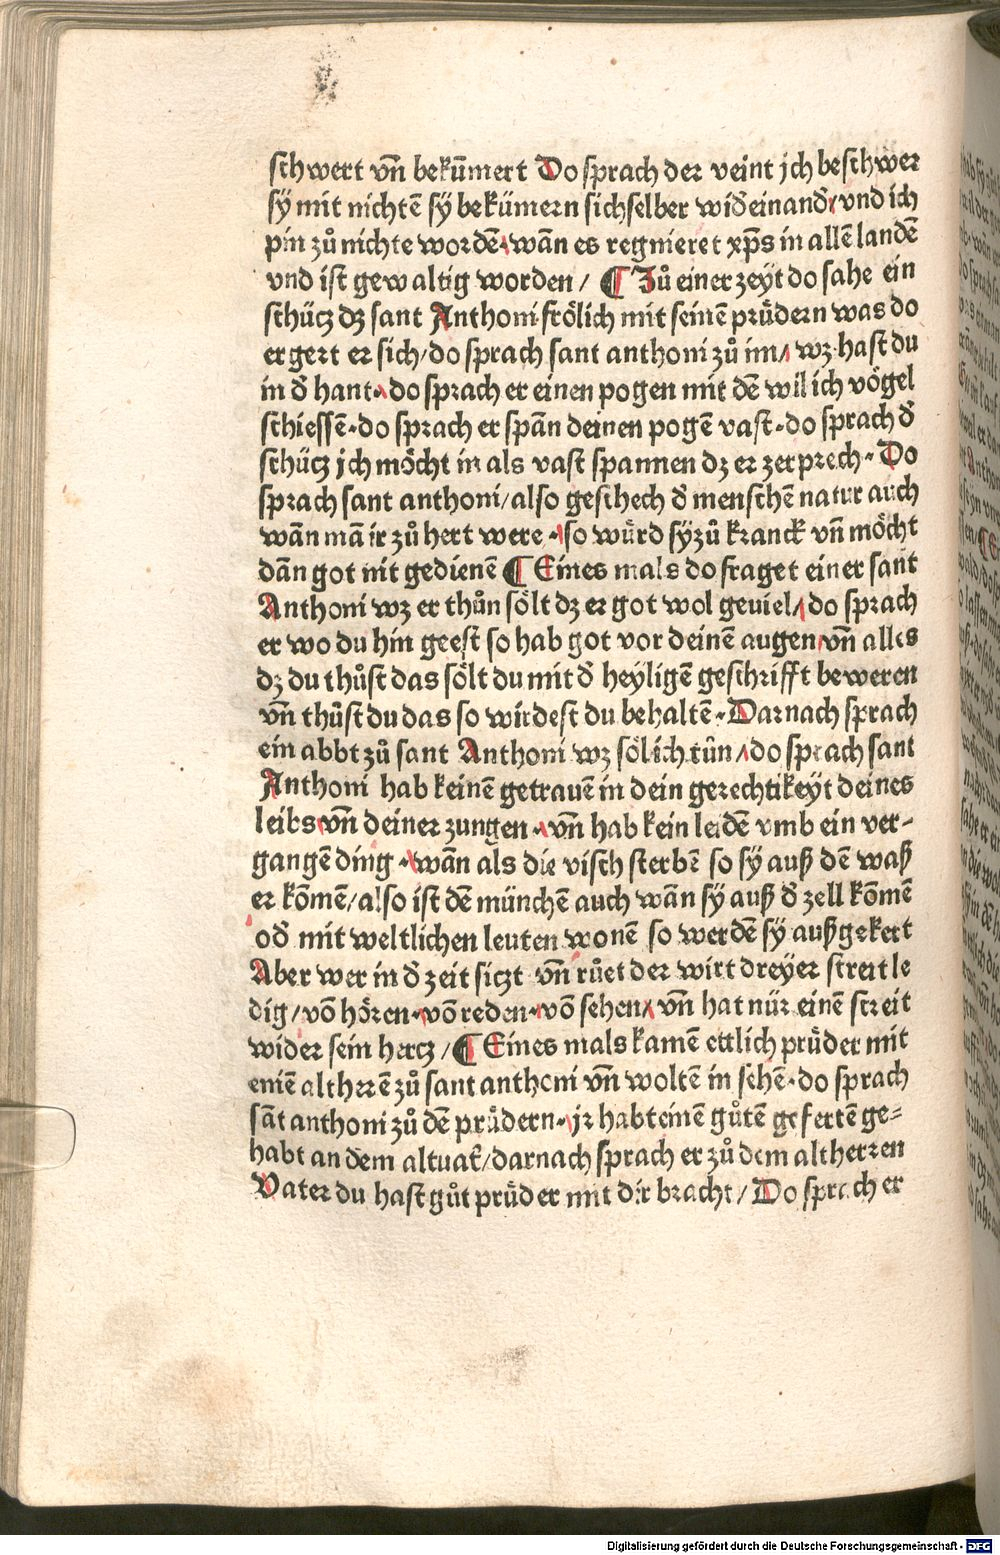 schwert vn̄ bekūmert Do sprach der veint jch beschwer
sÿ mit nichtē sÿ bekümern sichselber wid̄einand̄ vnd ich
pin zů nichte wordē wān es regnieret xp̄s in allē landē
vnd ist gewaltig worden / ¶ Zů einer zeyt do sahe ein
schücz dz sant Anthoni frölich mit seinē prüdern was do
ergert er sich/do sprach sant anthoni zů im/ wz hast du
in d̄ hant do sprach er einen pogen mit dē wil ich vögel
schiessē·do sprach er spān deinen pogē vast·do sprach d̄
schücz jch möcht in als vast spannen dz er zerprech· Do
sprach sant anthoni/also geschech d̄ menschē natur auch
wān mā ir zů hert were ·so würd sÿ zů kranck vn̄ möcht
dān got nit gedienē ¶ Eines mals do fraget einer sant
Anthoni wz er thůn sölt dz er got wol geviel/do sprach
er wo du hin geest so hab got vor deinē augen vn̄ alles
dz du thůst das sölt du mit d̄ heyligē geschrifft beweren
vn̄ thůst du das so wirdest du behaltē·Darnach sprach
ein abbt zů sant Anthoni wz sölich tůn do sprach sant
Anthoni hab keinē getrauē in dein gerechtikeyt deines
leibs vn̄ deiner zungen · vn̄ hab kein leidē vmb ein ver-
gangē ding ·wān als die visch sterbē so sÿ auß dē waß
er kōmē/also ist dē münchē auch wān sÿ auß d̄ zell kōmē
od̄ mit weltlichen leuten wonē so werdē sÿ außgekert
Aber wer in d̄ zeit siczt vn̄ růet der wirt dreyer streit le
dig/vō hören·vō reden·vō sehen vn̄ hat nür einē streit
wider sein hercz /¶ Eines mals kamē ettlich prüder mit
einē altherrē zů sant anthoni vn̄ woltē in sehē·do sprach
sāt anthoni zů dē prüdern·jr habt einē gůtē gefertē ge=
habt an dem altuat̄/darnach sprach er zů dem altherren
Vater du hast gůt prüder mit dir bracht/ Do sprach er
Digitalisierung gefördert durch die Deutsche Forschungsgemeinschaft - DFG